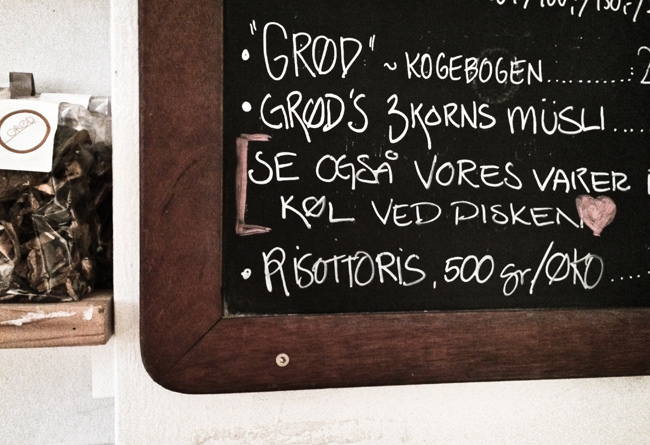 "GRØD" ~ KOGEBOGEN..........:2
• GRØD'S 3KORNS MÜSLI....
SE OGSÅ VORES VARER
KØL VED DISKEN
• RISOTTORIS, 500 gr/ØKO....
GRØD